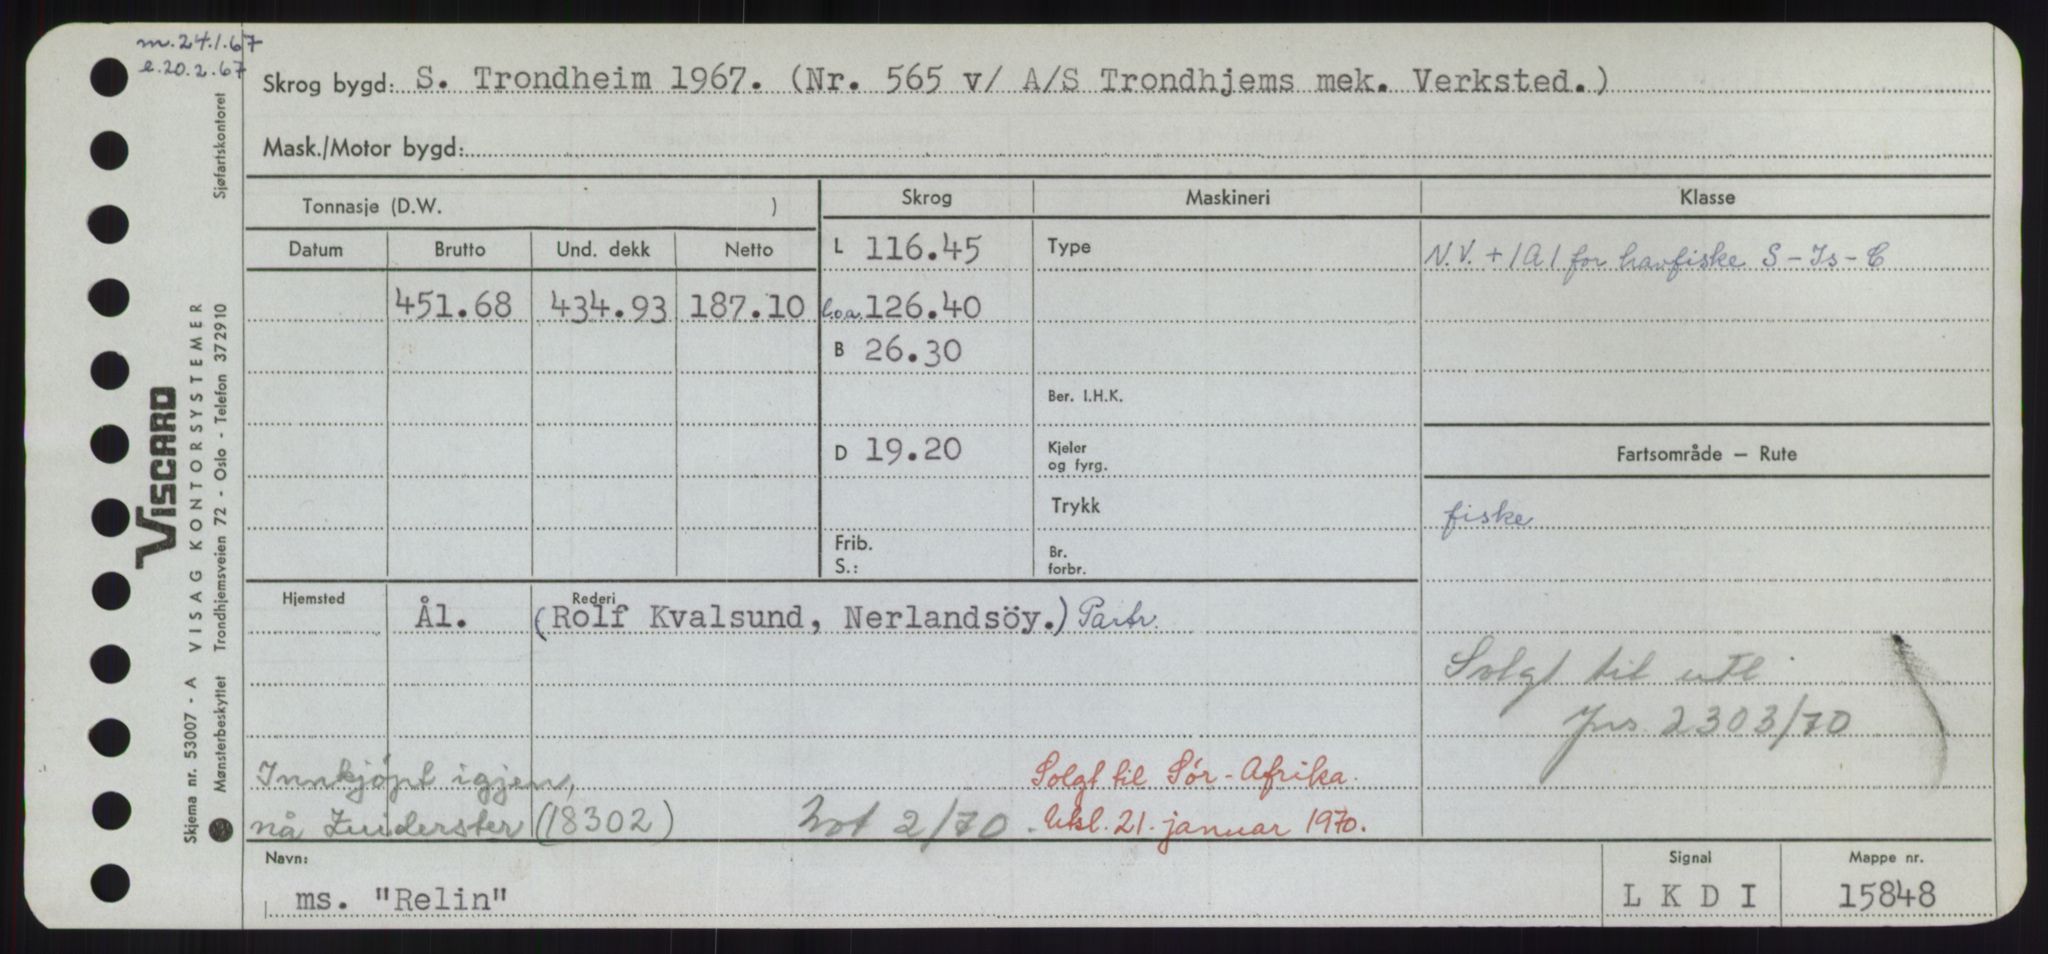 m. 24.1.67
e. 20.2.67
Skrog bygd: S. Trondheim 1967. (Nr. 565 v/ A/S Trondhjems mek. Verksted.)
Mask./Motor bygd:
Tonnasje (D.W. )
Skrog Maskineri Klasse
Datum Brutto Und. dekk Netto
L 116.45 Type N.V. + 1A1 for havfiske S-Is-C
451.68 434.93 187.10 l.o.a. 126.40
B 26.30
Ber. I.H.K.
D 19.20 Kjeler og fyrg. Fartsområde — Rute
Trykk fiske
Frib. S.: Br. forbr.
Hjemsted Rederi
Ål. (Rolf Kvalsund, Nerlandsöy.) Partr.
Solgt til utl
Jrs. 2303/70
Innkjøpt igjen, Solgt til Sør-Afrika.
nå Zuiderster (18302) 2/70. Utsl. 21. januar 1970.
Navn: Signal Mappe nr.
ms. "Relin" L K D I 15848
VISCARD
Skjema nr. 53007 - A VISAG KONTORSYSTEMER
Mønsterbeskyttet Trondhjemsveien 72 - Oslo - Telefon 372910 Sjøfartskontoret